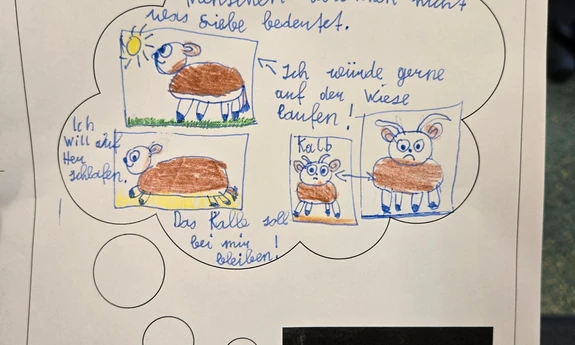 was Liebe bedeutet.
Ich würde gerne
auf der Wiese
laufen!
Ich
will auf
Heu
schlafen.
Kalb
Das Kalb soll
bei mir
bleiben!